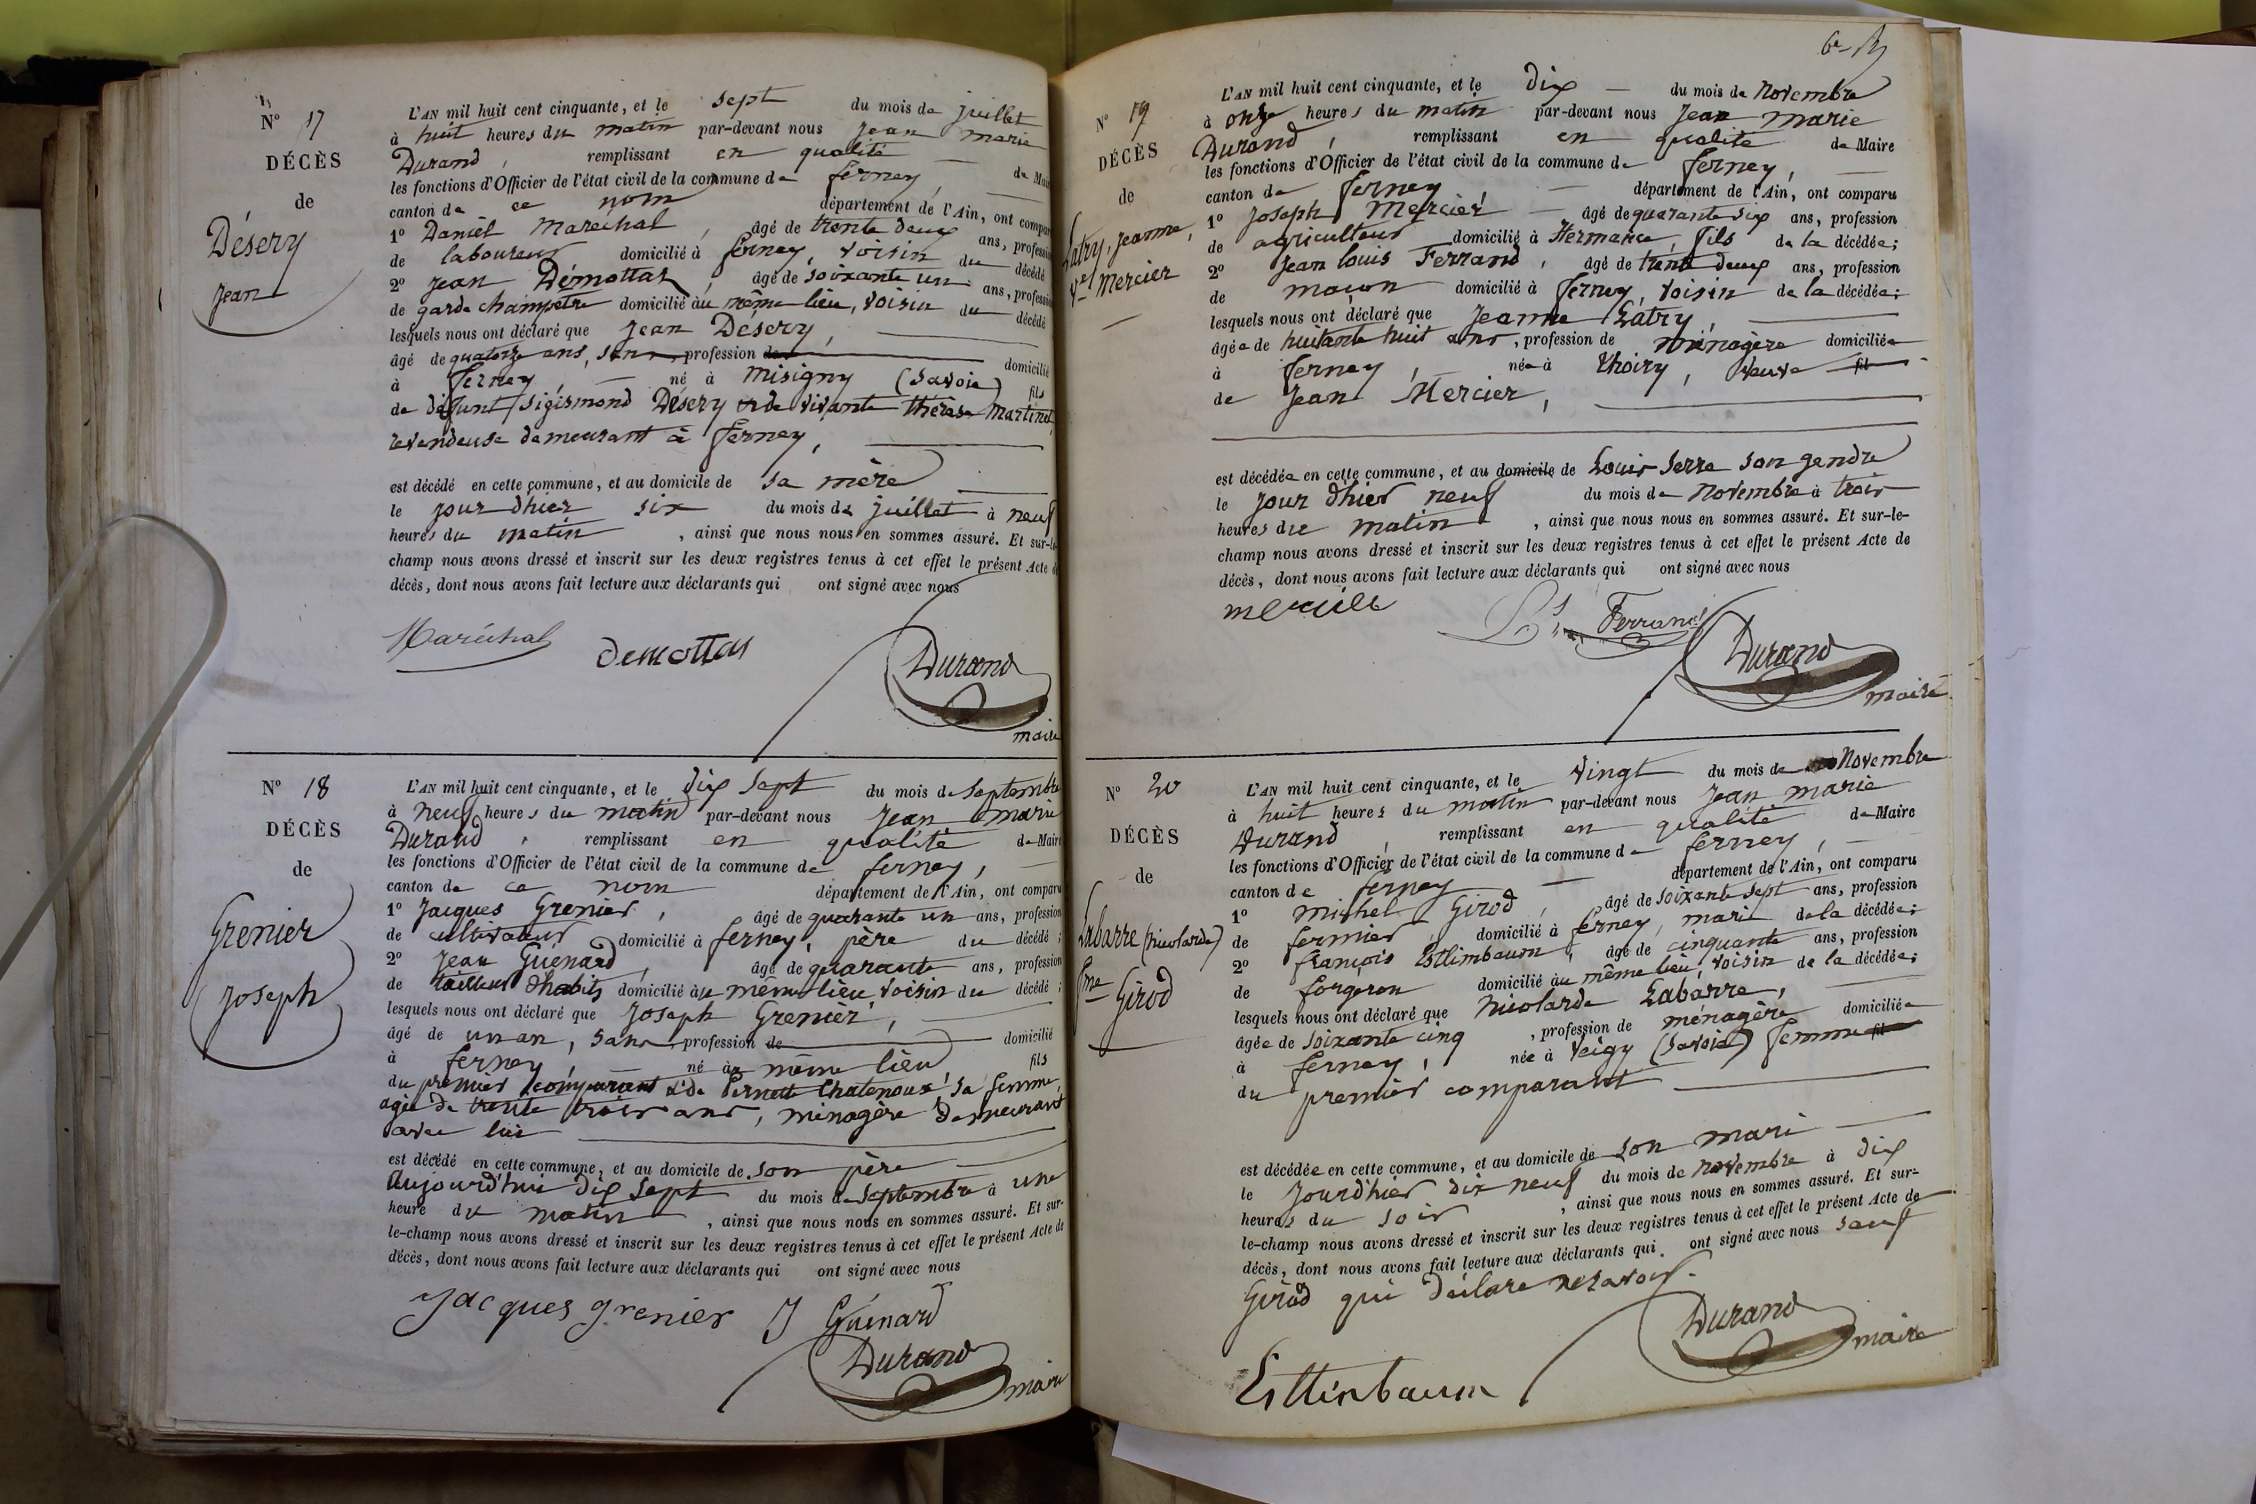 N° 17
DÉCÈS
de
Désery
Jean
L'AN mil huit cent cinquante, et le sept du mois de juillet
à huit heures du matin par-devant nous Jean marie
Durand, remplissant en qualité de Maire
les fonctions d'Officier de l'état civil de la commune de ferney,
canton de ce nom département de l'Ain, ont comparu
1° Daniel Maréchal, âgé de trente deux ans, profession
de laboureur domicilié à ferney, voisin du décédé
2° Jean Démottaz, âgé de soixante un ans, profession
de garde champêtre domicilié au même lieu, voisin du décédé
lesquels nous ont déclaré que Jean Désery,
âgé de quatorze ans, sans profession de domicilié
à ferney, né à misigny (Savoie) fils
de défunt Sigismond Désery et de vivante thérèse Martinet,
revendeuse demeurant à ferney,
est décédé en cette commune, et au domicile de sa mère
le jour d'hier six du mois de juillet à neuf
heures du matin, ainsi que nous nous en sommes assuré. Et sur-le-
champ nous avons dressé et inscrit sur les deux registres tenus à cet effet le présent Acte de
décès, dont nous avons fait lecture aux déclarants qui ont signé avec nous
Maréchal demottas Durand
maire
N° 18
DÉCÈS
de
Grenier
Joseph
L'AN mil huit cent cinquante, et le dix sept du mois de septembre
à neuf heures du matin par-devant nous Jean marie
Durand, remplissant en qualité de Maire
les fonctions d'Officier de l'état civil de la commune de ferney,
canton de ce nom département de l'Ain, ont comparu
1° Jacques Grenier, âgé de quarante un ans, profession
de cultivateur domicilié à ferney, père du décédé ;
2° Jean Guénard, âgé de quarante ans, profession
de tailleur d'habits domicilié au même lieu, voisin du décédé ;
lesquels nous ont déclaré que Joseph Grenier,
âgé de un an, sans profession de domicilié
à ferney né au même lieu, fils
du premier comparant & de Pernette Chatenoux, sa femme,
agée de trente trois ans, ménagère demeurant
avec lui
est décédé en cette commune, et au domicile de son père
aujourd'hui dix sept du mois de septembre à une
heure du matin, ainsi que nous nous en sommes assuré. Et sur-
le-champ nous avons dressé et inscrit sur les deux registres tenus à cet effet le présent Acte de
décès, dont nous avons fait lecture aux déclarants qui ont signé avec nous
Jacques grenier J Guénard
Durand maire
N° 19
DÉCÈS
de
Latry, Jeanne,
Ve Mercier
L'AN mil huit cent cinquante, et le dix du mois de Novembre
à onze heures du matin par-devant nous Jean marie
Durand, remplissant en qualité de Maire
les fonctions d'Officier de l'état civil de la commune de ferney,
canton de ferney, département de l'Ain, ont comparu
1° Joseph Mercier âgé de quarante six ans, profession
de agriculteur domicilié à Hermance, fils de la décédée;
2° Jean Louis Ferrand, âgé de trente deux ans, profession
de maçon domicilié à ferney, voisin de la décédée;
lesquels nous ont déclaré que Jeanne Latry,
âgée de huitante huit ans, profession de ménagère domiciliée
à ferney, née à thoiry, veuve fil
de Jean Mercier,
est décédée en cette commune, et au domicile de Louis Serre son gendre
le jour d'hier neuf du mois de novembre à trois
heures du matin, ainsi que nous nous en sommes assuré. Et sur-le-
champ nous avons dressé et inscrit sur les deux registres tenus à cet effet le présent Acte de
décès, dont nous avons fait lecture aux déclarants qui ont signé avec nous
Ls Ferrand Durand
maire
N° 20
DÉCÈS
de
Labarre (Nicolarde)
fme Girod
L'AN mil huit cent cinquante, et le vingt du mois de Novembre
à huit heures du matin par-devant nous Jean marie
Durand, remplissant en qualité de Maire
les fonctions d'Officier de l'état civil de la commune de ferney,
canton de ferney département de l'Ain, ont comparu
1° michel Girod, âgé de soixante sept ans, profession
de fermier, domicilié à ferney, mari de la décédée;
2° françois Estlimbaum, âgé de cinquante ans, profession
de forgeron domicilié au même lieu, voisin de la décédée;
lesquels nous ont déclaré que Nicolarde Labarre,
âgée de soixante cinq, profession de ménagère domiciliée
à ferney, née à Veigy (Savoie) femme fil
du premier comparant
est décédée en cette commune, et au domicile de son mari
le jour d'hier dix neuf du mois de novembre à dix
heures du soir, ainsi que nous nous en sommes assuré. Et sur-
le-champ nous avons dressé et inscrit sur les deux registres tenus à cet effet le présent Acte de
décès, dont nous avons fait lecture aux déclarants qui ont signé avec nous sauf
Girod qui déclare ne savoir.
Durand maire